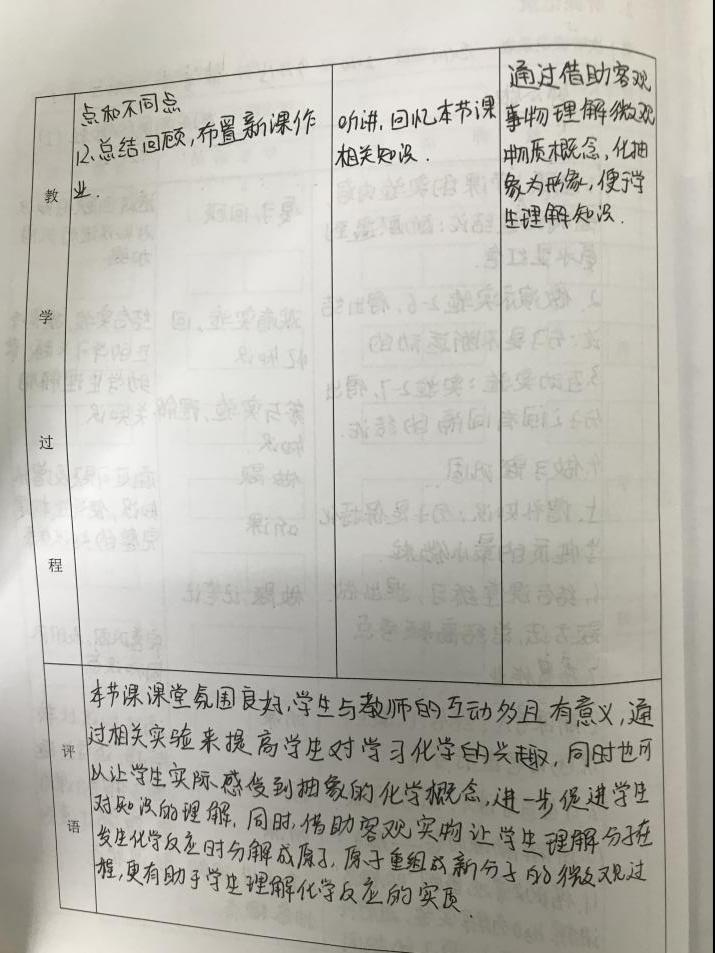 教
学
过
程
点和不同点
12.总结回顾,布置新课作
业.
听讲,回忆本节课
相关知识.
通过借助客观
事物理解微观
物质概念,化抽
象为形象,便于学
生理解知识.
评
语
本节课课堂氛围良好,学生与教师的互动多且有意义,通
过相关实验来提高学生对学习化学的兴趣,同时也可
以让学生实际感受到抽象的化学概念,进一步促进学生
对知识的理解.同时,借助客观实物让学生理解分子在
发生化学反应时分解成原子,原子重组成新分子的微观过
程,更有助于学生理解化学反应的实质.